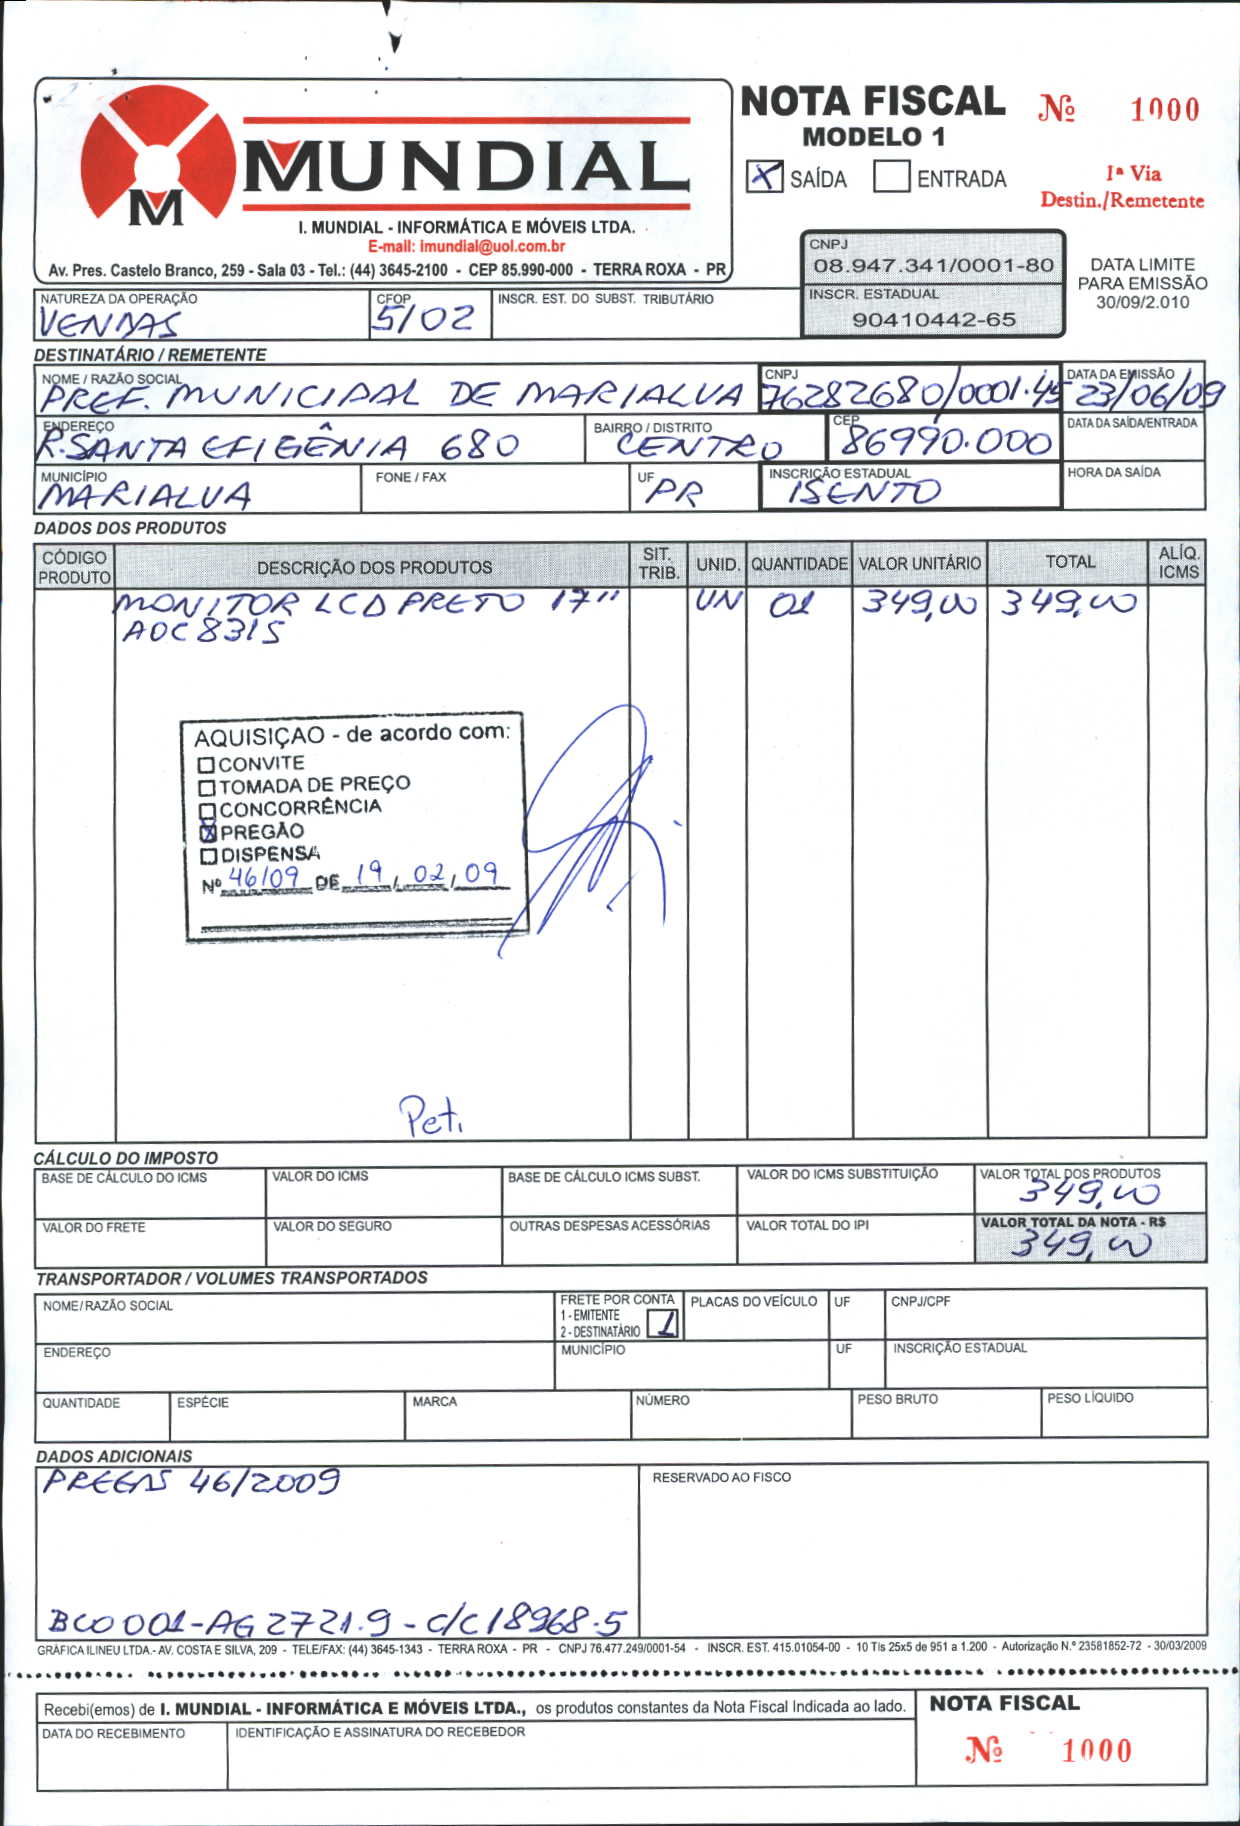 MUNDIAL
M
I. MUNDIAL - INFORMÁTICA E MÓVEIS LTDA.
E-mail: imundial@uol.com.br
Av. Pres. Castelo Branco, 259 - Sala 03 - Tel.: (44) 3645-2100 - CEP 85.990-000 - TERRA ROXA - PR
NOTA FISCAL Nº 1000
MODELO 1
X SAÍDA ENTRADA
1ª Via
Destin./Remetente
CNPJ
08.947.341/0001-80
INSCR. ESTADUAL
90410442-65
DATA LIMITE
PARA EMISSÃO
30/09/2.010
NATUREZA DA OPERAÇÃO CFOP INSCR. EST. DO SUBST. TRIBUTÁRIO
VENDAS 5/02
DESTINATÁRIO / REMETENTE
NOME / RAZÃO SOCIAL CNPJ DATA DA EMISSÃO
PREF. MUNICIPAL DE MARIALVA 76282680/0001.45 23/06/09
ENDEREÇO BAIRRO / DISTRITO CEP DATA DA SAÍDA/ENTRADA
R. SANTA EFIGÊNIA 680 CENTRO 86990.000
MUNICÍPIO FONE / FAX UF INSCRIÇÃO ESTADUAL HORA DA SAÍDA
MARIALVA PR ISENTO
DADOS DOS PRODUTOS
CÓDIGO PRODUTO DESCRIÇÃO DOS PRODUTOS SIT. TRIB. UNID. QUANTIDADE VALOR UNITÁRIO TOTAL ALÍQ. ICMS
MONITOR LCD PRETO 17" UN 01 349,00 349,00
AOC 831S
AQUISIÇAO - de acordo com:
CONVITE
TOMADA DE PREÇO
CONCORRÊNCIA
X PREGÃO
DISPENSA
Nº 46/09 DE 19/02/09
Pet.
CÁLCULO DO IMPOSTO
BASE DE CÁLCULO DO ICMS VALOR DO ICMS BASE DE CÁLCULO ICMS SUBST. VALOR DO ICMS SUBSTITUIÇÃO VALOR TOTAL DOS PRODUTOS
349,00
VALOR DO FRETE VALOR DO SEGURO OUTRAS DESPESAS ACESSÓRIAS VALOR TOTAL DO IPI VALOR TOTAL DA NOTA - R$
349,00
TRANSPORTADOR / VOLUMES TRANSPORTADOS
NOME/RAZÃO SOCIAL FRETE POR CONTA PLACAS DO VEÍCULO UF CNPJ/CPF
1 - EMITENTE
2 - DESTINATÁRIO 1
ENDEREÇO MUNICÍPIO UF INSCRIÇÃO ESTADUAL
QUANTIDADE ESPÉCIE MARCA NÚMERO PESO BRUTO PESO LÍQUIDO
DADOS ADICIONAIS
46/2009
RESERVADO AO FISCO
BCO 001-AG 2721.9 - C/C 18968.5
GRÁFICA ILINEU LTDA.- AV. COSTA E SILVA, 209 - TELE/FAX: (44) 3645-1343 - TERRA ROXA - PR - CNPJ 76.477.249/0001-54 - INSCR. EST. 415.01054-00 - 10 Tls 25x5 de 951 a 1.200 - Autorização N.º 23581852-72 - 30/03/2009
Recebi(emos) de I. MUNDIAL - INFORMÁTICA E MÓVEIS LTDA., os produtos constantes da Nota Fiscal Indicada ao lado.
DATA DO RECEBIMENTO IDENTIFICAÇÃO E ASSINATURA DO RECEBEDOR
NOTA FISCAL
Nº 1000